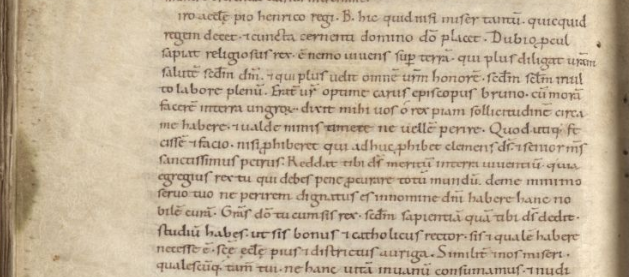 iro aecclę pio henrico regi. B. hic quid nisi miser tantū. quicquid
regem decet. & cuncta cernenti domino dō placet. Dubio ꝓcul
sapiat religiosus rex. ē nemo uiuens sup terrā. qui plus diligat urām
salutē scdm dm̄. & qui plus uelit omnē urm̄ honorē. scdm sclm̄ mul
to labore plenū. Erat ur optime carus episcopus bruno. cū morā
facerē in terra ungrorꝝ. dixit mihi uos ó rex piam sollicitudinē circa
me habere. & ualde nimis timere ne uellē perire. Quod utiqꝫ fe
cissē & facio. nisi ꝓhiberet qui adhuc ꝓhibet clemens ds̄. & senior ms̄
sanctissimus petrus. Reddat tibi ds̄ meritū in terra uiuentiū. quia
egregius rex tu qui debes pene ꝓcurare totū mundū. de me minimo
seruo tuo ne perirem dignatus es in nomine dn̄i habere hanc no
bilē curā. Gr̄as dō tu cum sis rex. scdm sapientiā quā tibi ds̄ dedit.
studiū habes. ut sis bonus & catholicus rector. sis & qualē habere
necesse ē. scę ecclę pius & districtus auriga. Similit̄ & nos miseri.
qualescūqꝫ tam̄ tui. ne hanc uitā in uanū consumamus. & nudi